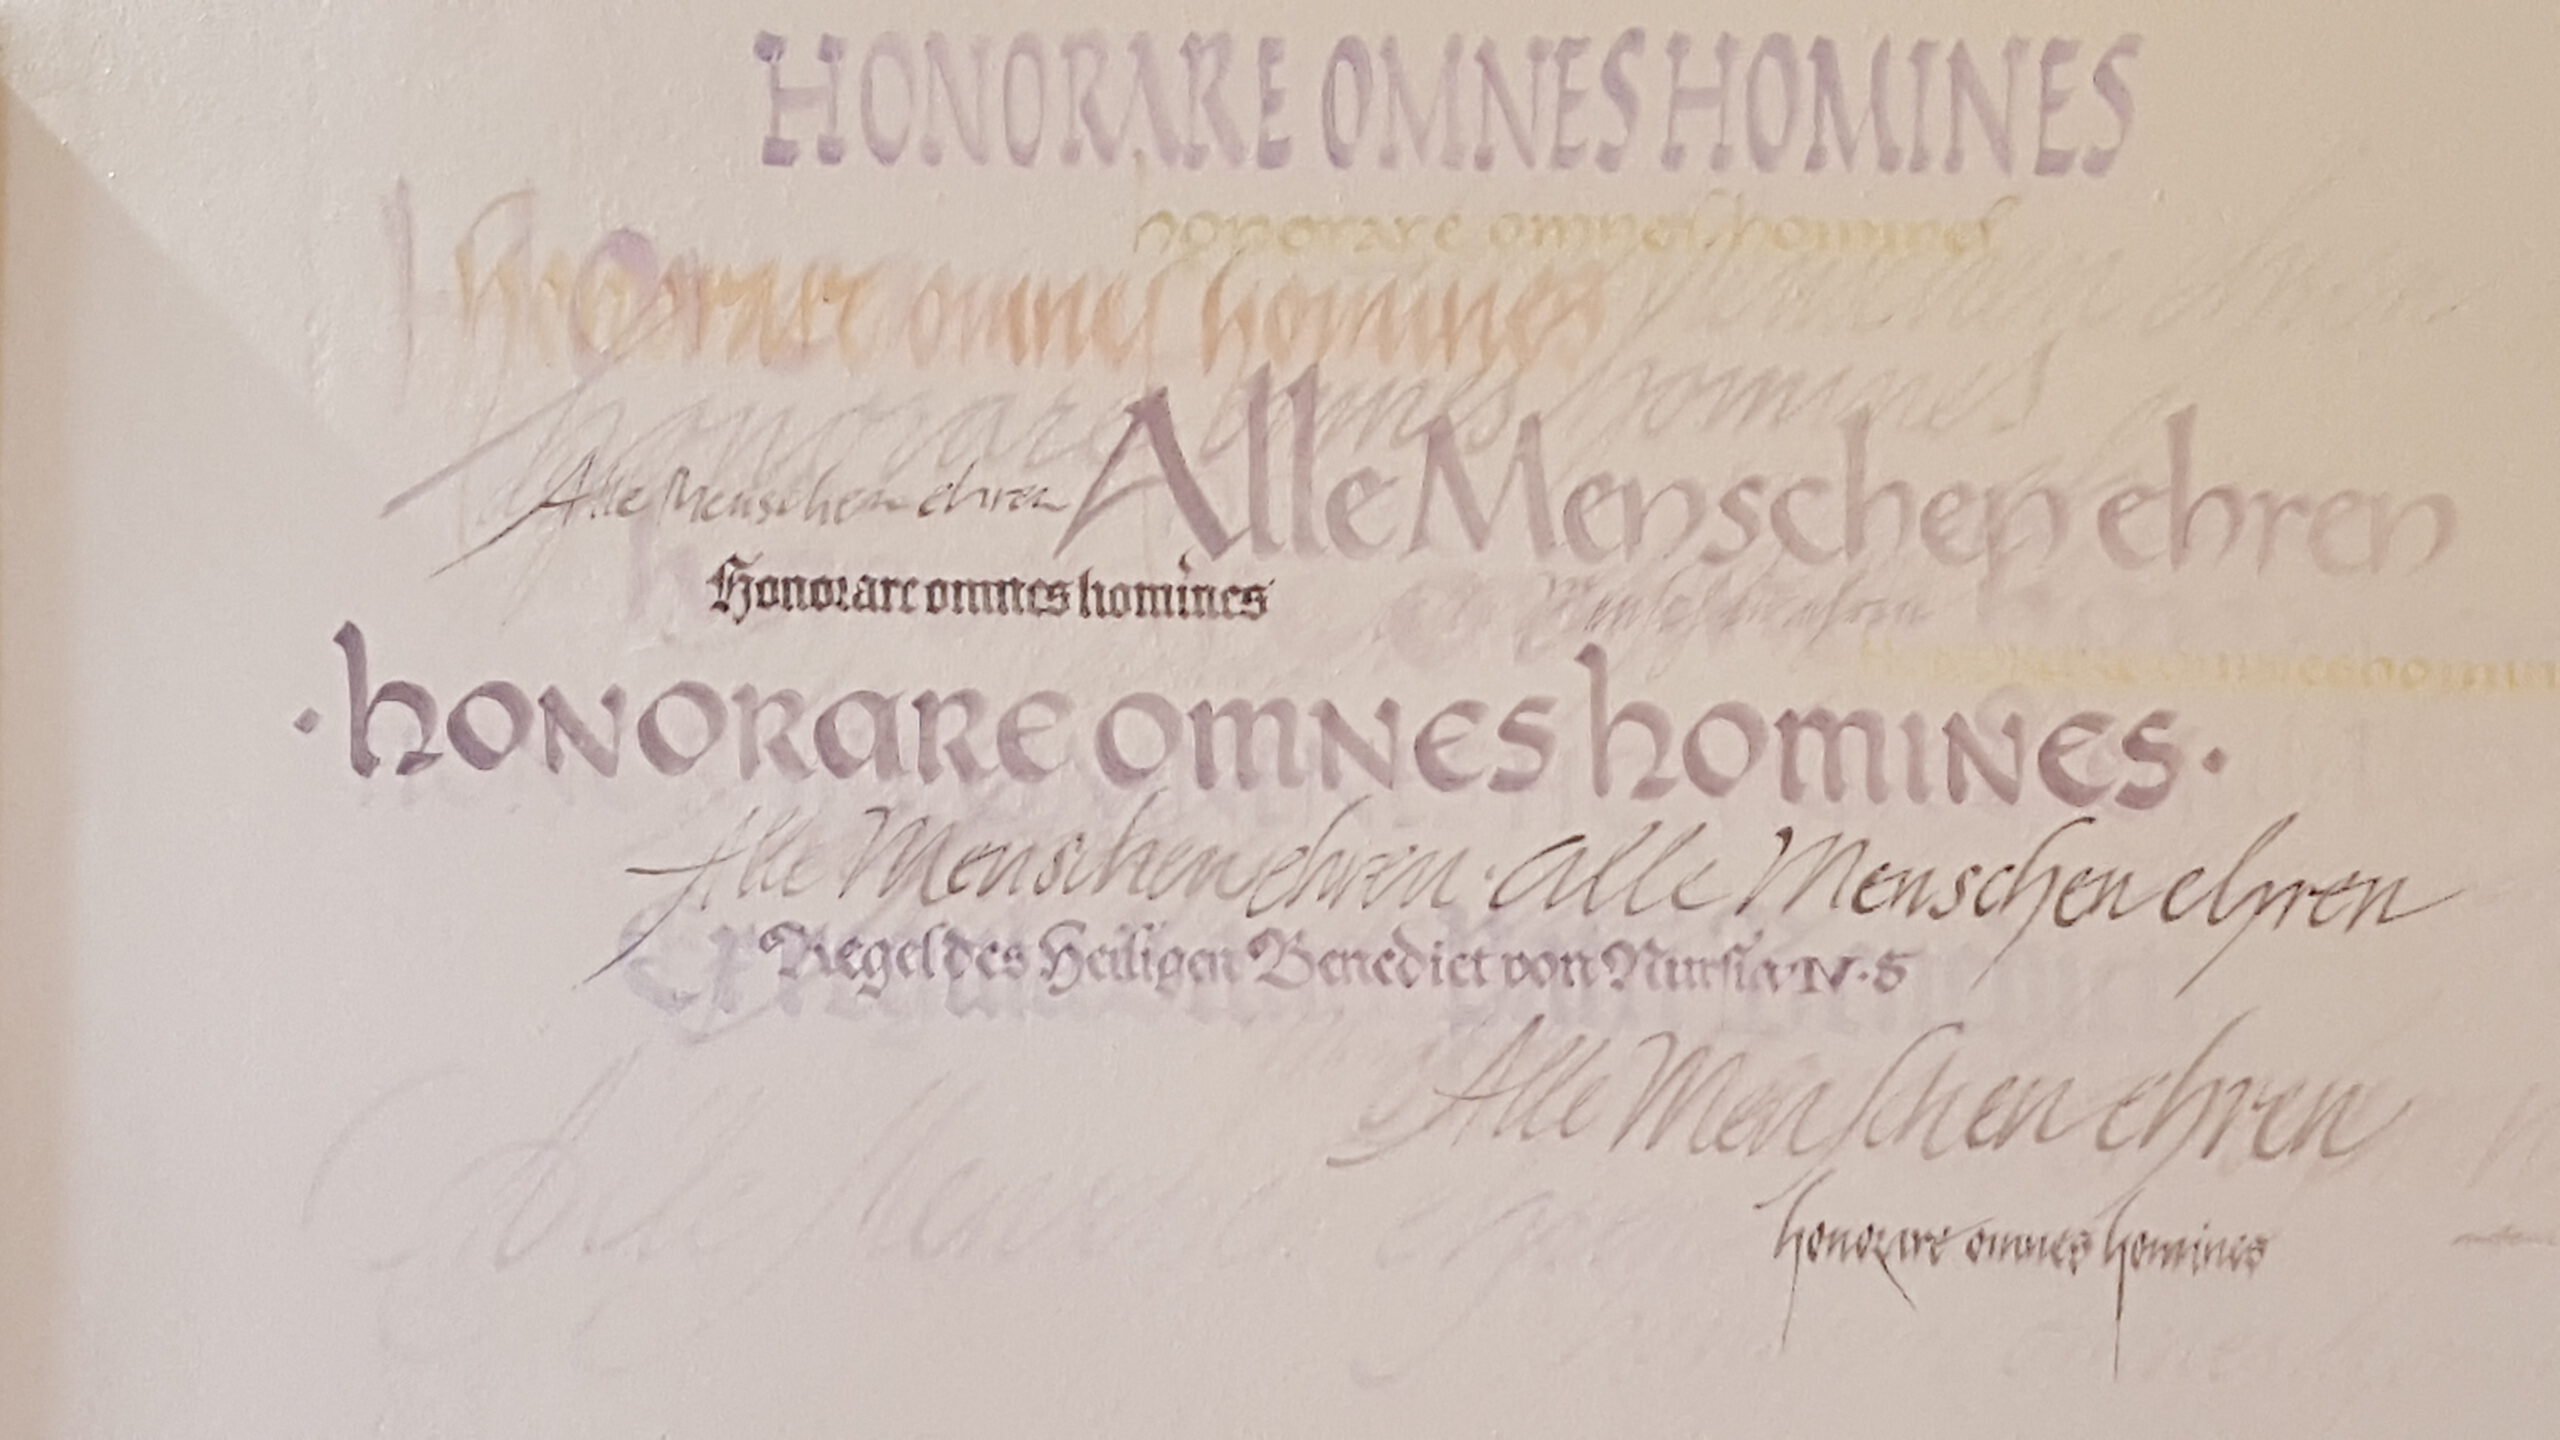 HONORARE OMNES HOMINES
honorare omnes homines
honorare omnes homines
honorare omnes homines
Alle Menschen ehren
Alle Menschen ehren
Honorare omnes homines
Menschen ehren
·honorare omnes homines·
Alle Menschen ehren · alle Menschen ehren
Regel des Heiligen Benedict von Nursia N·5
Alle Menschen ehren
honorare omnes homines